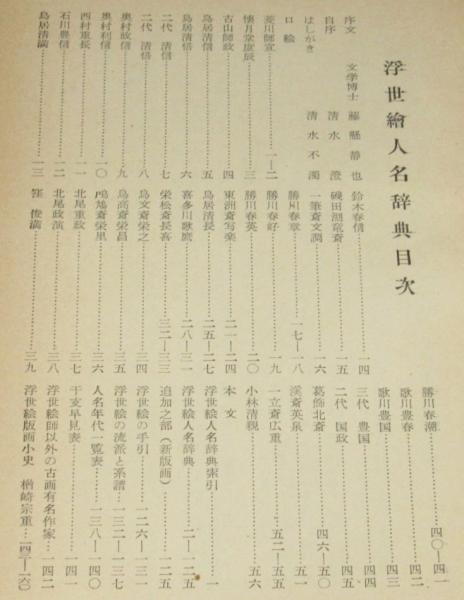 浮世繪人名辞典目次
序文 文学博士 藤懸静也
自序 清水澄
はしがき 清水不濁
口絵
菱川師宣……一—二
懐月堂度辰……三
古山師政……四
鳥居清信……五
鳥居清倍……六
二代 清信……七
二代 清倍……八
奥村政信……九
奥村利信……一〇
西村重長……一一
石川豊信……一二
鳥居清満……一三
鈴木春信……一四
磯田湖竜斎……一五
一筆斎文調……一六
勝川春章……一七—一八
勝川春好……一九
勝川春英……二〇
東洲斎写楽……二一—二四
鳥居清長……二五—二七
喜多川歌麿……二八—三一
栄松斎長喜……三二—三三
鳥文斎栄之……三四
鳥高斎栄昌……三五
鳴鳩斎栄里……三六
北尾重政……三七
北尾政演……三八
窪俊満……三九
勝川春潮……四〇—四一
歌川豊春……四二
歌川豊国……四三
三代 豊国……四四
二代 国政……四五
葛飾北斎……四六—五〇
渓斎英泉……五一
一立斎広重……五二—五五
小林清親……五六
本文
浮世絵人名辞典索引
浮世絵人名辞典……一—一二五
追加之部(新版画)……一二五
浮世絵の手引……一二六—一三一
浮世絵の流派と系譜……一三二—一三七
人名年代一覧表……一三八—一四〇
干支早見表……一四一
浮世絵師以外の古画有名作家……一四二
浮世絵版画小史 楢崎宗重……一四三—一六〇